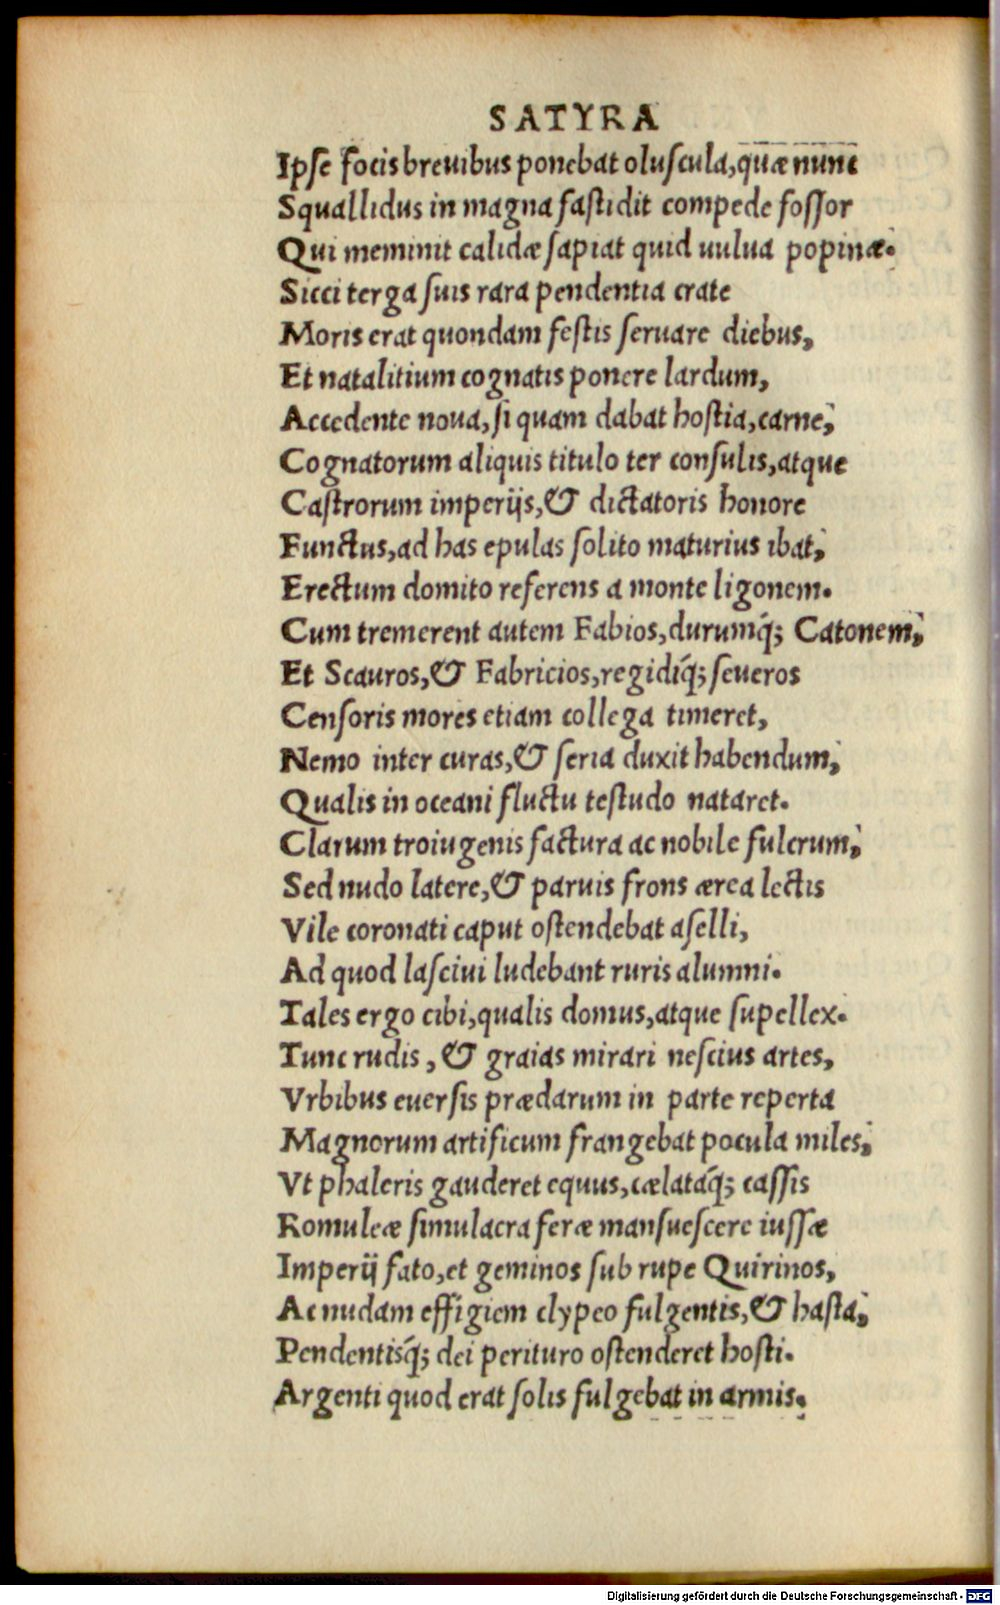 SATYRA
Ipse focis breuibus ponebat oluscula, quæ nunc
Squallidus in magna fastidit compede fossor
Qui meminit calidæ sapiat quid uulua popinæ.
Sicci terga suis rara pendentia crate
Moris erat quondam festis seruare diebus,
Et natalitium cognatis ponere lardum,
Accedente noua, si quam dabat hostia, carne;
Cognatorum aliquis titulo ter consulis, atque
Castrorum imperijs, & dictatoris honore
Functus, ad has epulas solito maturius ibat;
Erectum domito referens a monte ligonem.
Cum tremerent autem Fabios, durumq́; Catonem;
Et Scauros, & Fabricios, regidiq́; seueros
Censoris mores etiam collega timeret,
Nemo inter curas, & seria duxit habendum;
Qualis in oceani fluctu testudo nataret.
Clarum troiugenis factura ac nobile fulcrum;
Sed nudo latere, & paruis frons ærea lectis
Vile coronati caput ostendebat aselli,
Ad quod lasciui ludebant ruris alumni.
Tales ergo cibi, qualis domus, atque supellex.
Tunc rudis, & graias mirari nescius artes,
Vrbibus euersis prædarum in parte reperta
Magnorum artificum frangebat pocula miles;
Vt phaleris gauderet equus, cælataq́; cassis
Romuleæ simulacra feræ mansuescere iussæ
Imperij fato, et geminos sub rupe Quirinos,
Ac nudam effigiem clypeo fulgentis, & hasta;
Pendentisq́; dei perituro ostenderet hosti.
Argenti quod erat solis fulgebat in armis.
Digitalisierung gefördert durch die Deutsche Forschungsgemeinschaft - DFG